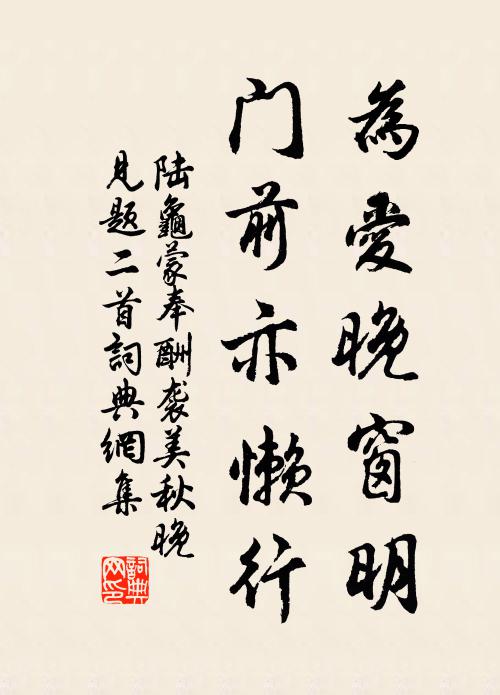 為愛晚窗明
门前亦懒行
陆龜蒙奉酬袭美秋晚
見题二首詞典網集
詞典
网印